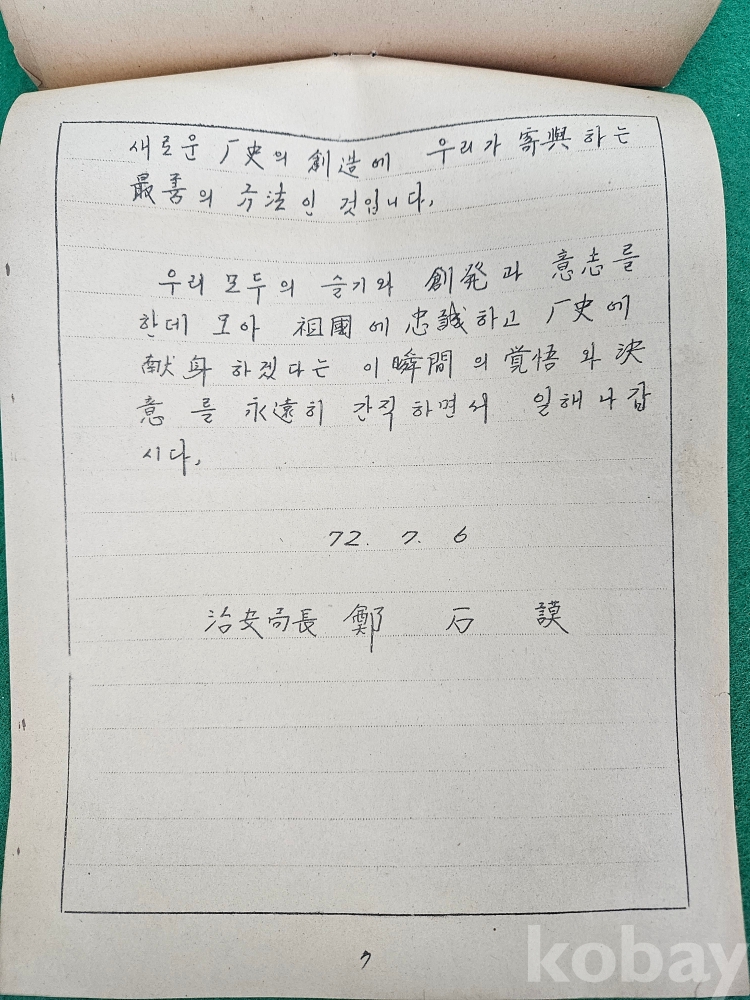 새로운 厂史의 創造에 우리가 寄與하는
最善의 方法인 것입니다.
우리 모두의 슬기와 創発과 意志를
한데 모아 祖國에 忠誠하고 厂史에
献身하겠다는 이 瞬間의 覚悟와 決
意를 永遠히 간직하면서 일해 나갑
시다.
72. 7. 6
治安局長 鄭 石 謨
7
kobay